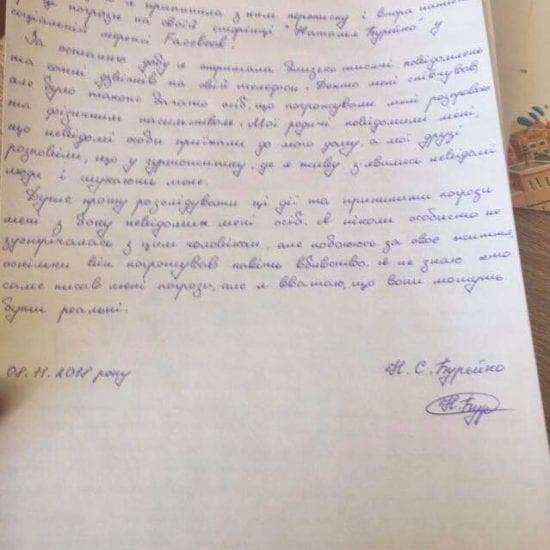 я припинила з ним переписку і вчора написала
ці погрози на своїй сторінці "Наталья Бурейко" у
соціальній мережі Facebook.
За останню добу я отримала близько тисячі повідомлень
та сотні дзвінків на свій телефон. Дехто мені співчував,
але було також багато осіб, що погрожували мені розправою
та фізичним насильством. Мої родичі повідомили мені,
що невідомі особи приїхали до мого дому, а мої друзі
розповіли, що у гуртожитку, де я живу з'явились невідомі
люди і шукають мене.
Дуже прошу розслідувати ці дії та припинити погрози
мені з боку невідомих мені осіб. Я ніколи особисто не
зустрічалась з цим чоловіком, але побоююсь за своє життя,
оскільки він погрожував навіть вбивством. Я не знаю хто
саме писав мені погрози, але я вважаю, що вони можуть
бути реальні.
08.11.2018 року Н. С. Бурейко
Н.Бур